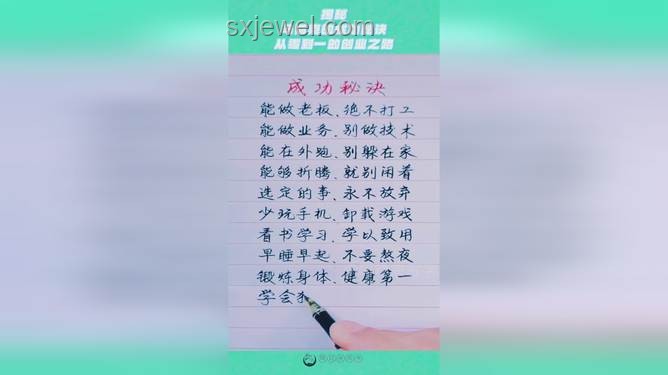 sxjewel.com
揭秘
从零到一的创业之路
成功秘诀
能做老板、绝不打工
能做业务、别做技术
能在外跑、别躲在家
能够折腾、就别闲着
选定的事、永不放弃
少玩手机、卸载游戏
看书学习、学以致用
早睡早起、不要熬夜
锻炼身体、健康第一
学会